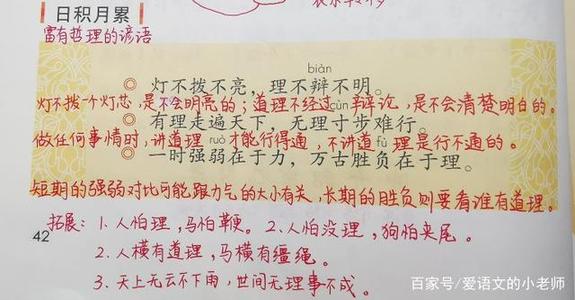 日积月累
富有哲理的谚语
biàn
灯不拨不亮，理不辩不明。
灯不拨个灯芯，是不会明亮的；道理不经过辩论，是不会清楚明白的。
cùn
有理走遍天下，无理寸步难行。
做任何事情时，讲道理才能行得通，不讲道理是行不通的。
ruò fù
一时强弱在于力，万古胜负在于理。
短期的强弱对比可能跟力气的大小有关，长期的胜负则要看谁有道理。
拓展：1、人怕理，马怕鞭。2、人怕没理，狗怕夹尾。
42
2、人横有道理，马横有缰绳。
3、天上无云不下雨，世间无理事不成。
百家号/爱语文的小老师